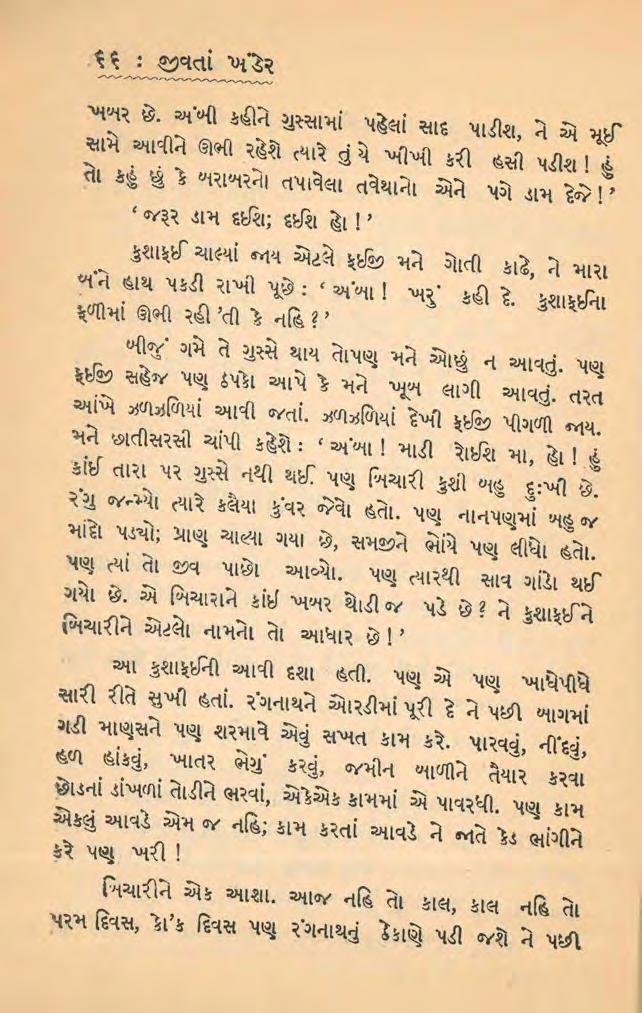 ૬૬ : જીવતાં ખંડેર
ખબર છે. અંબી કહીને ગુસ્સામાં પહેલાં સાદ પાડીશ, ને એ મૂઈ
સામે આવીને ઊભી રહેશે ત્યારે તું યે ખીખી કરી હસી પડીશ ! હું
તો કહું છું કે બરાબરનો તપાવેલા તવેથાનો એને પગે ડામ દેજે ! ’
‘ જરૂર ડામ દઈશ; દઈશ હો ! ’
કુશાફઈ ચાલ્યાં જાય એટલે ફઈજી મને ગોતી કાઢે, ને મારા
બંને હાથ પકડી રાખી પૂછે : ‘ અંબા ! ખરું કહી દે. કુશાફઈના
ફળીમાં ઊભી રહી ’તી કે નહિ ? ’
બીજું ગમે તે ગુસ્સે થાય તોપણ મને ઓછું ન આવતું. પણ
ફઈજી સહેજ પણ ઠપકો આપે કે મને ખૂબ લાગી આવતું. તરત
આંખે ઝળઝળિયાં આવી જતાં. ઝળઝળિયાં દેખી ફઈજી પીગળી જાય.
મને છાતીસરસી ચાંપી કહેશે : ‘ અંબા ! માડી રોઈશ મા, હો ! હું
કાંઈ તારા પર ગુસ્સે નથી થઈ. પણ બિચારી કુશી બહુ દુઃખી છે.
રંગુ જન્મ્યો ત્યારે કલૈયા કુંવર જેવો હતો. પણ નાનપણમાં બહુ જ
માંદો પડ્યો; પ્રાણ ચાલ્યા ગયા છે, સમજીને ભોંયે પણ લીધો હતો.
પણ ત્યાં તો જીવ પાછો આવ્યો. પણ ત્યારથી સાવ ગાંડો થઈ
ગયો છે. એ બિચારાને કાંઈ ખબર થોડી જ પડે છે ? ને કુશાફઈને
બિચારીને એટલો નામનો તો આધાર છે ! ’
આ કુશાફઈની આવી દશા હતી. પણ એ પણ ખાધેપીધે
સારી રીતે સુખી હતાં. રંગનાથને ઓરડીમાં પૂરી દે ને પછી બાગમાં
ગડી માણસને પણ શરમાવે એવું સખત કામ કરે. પારવવું, નીંદવું,
હળ હાંકવું, ખાતર ભેગું કરવું, જમીન બાળીને તૈયાર કરવા
છોડનાં ડાંખળાં તોડીને ભરવાં, એકેએક કામમાં એ પાવરધી. પણ કામ
એકલું આવડે એમ જ નહિ; કામ કરતાં આવડે ને જાતે કેડ ભાંગીને
કરે પણ ખરી !
બિચારીને એક આશા. આજ નહિ તો કાલ, કાલ નહિ તો
પરમ દિવસ, કો’ક દિવસ પણ રંગનાથનું ઠેકાણે પડી જશે ને પછી